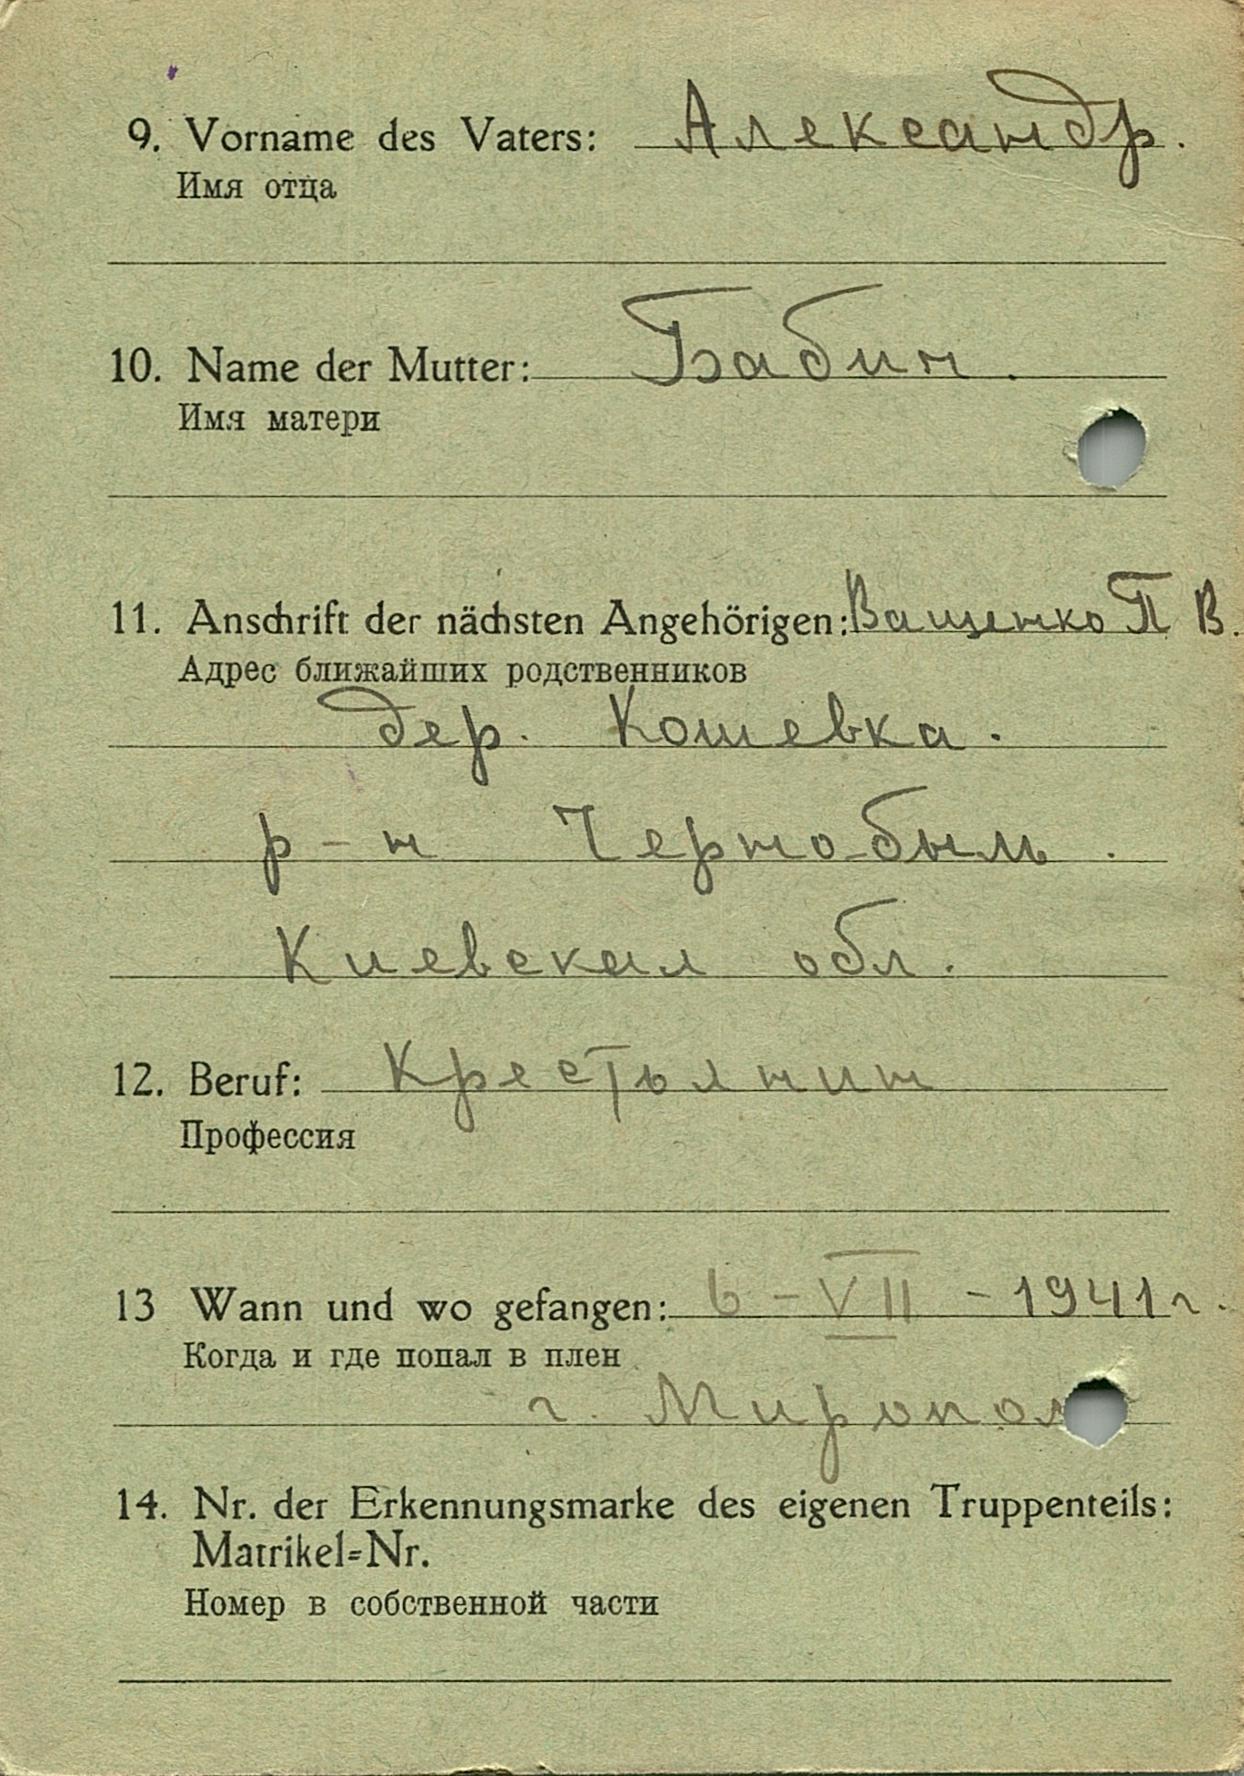 9. Vorname des Vaters: Александр.
Имя отца
10. Name der Mutter: Бабич.
Имя матери
11. Anschrift der nächsten Angehörigen: Ващенко П В.
Адрес ближайших родственников
дер. Кошевка.
р-н Чернобыль.
Киевская обл.
12. Beruf: Крестьянин
Профессия
13 Wann und wo gefangen: 6-VII-1941г.
Когда и где попал в плен
г.
14. Nr. der Erkennungsmarke des eigenen Truppenteils:
Matrikel=Nr.
Номер в собственной части